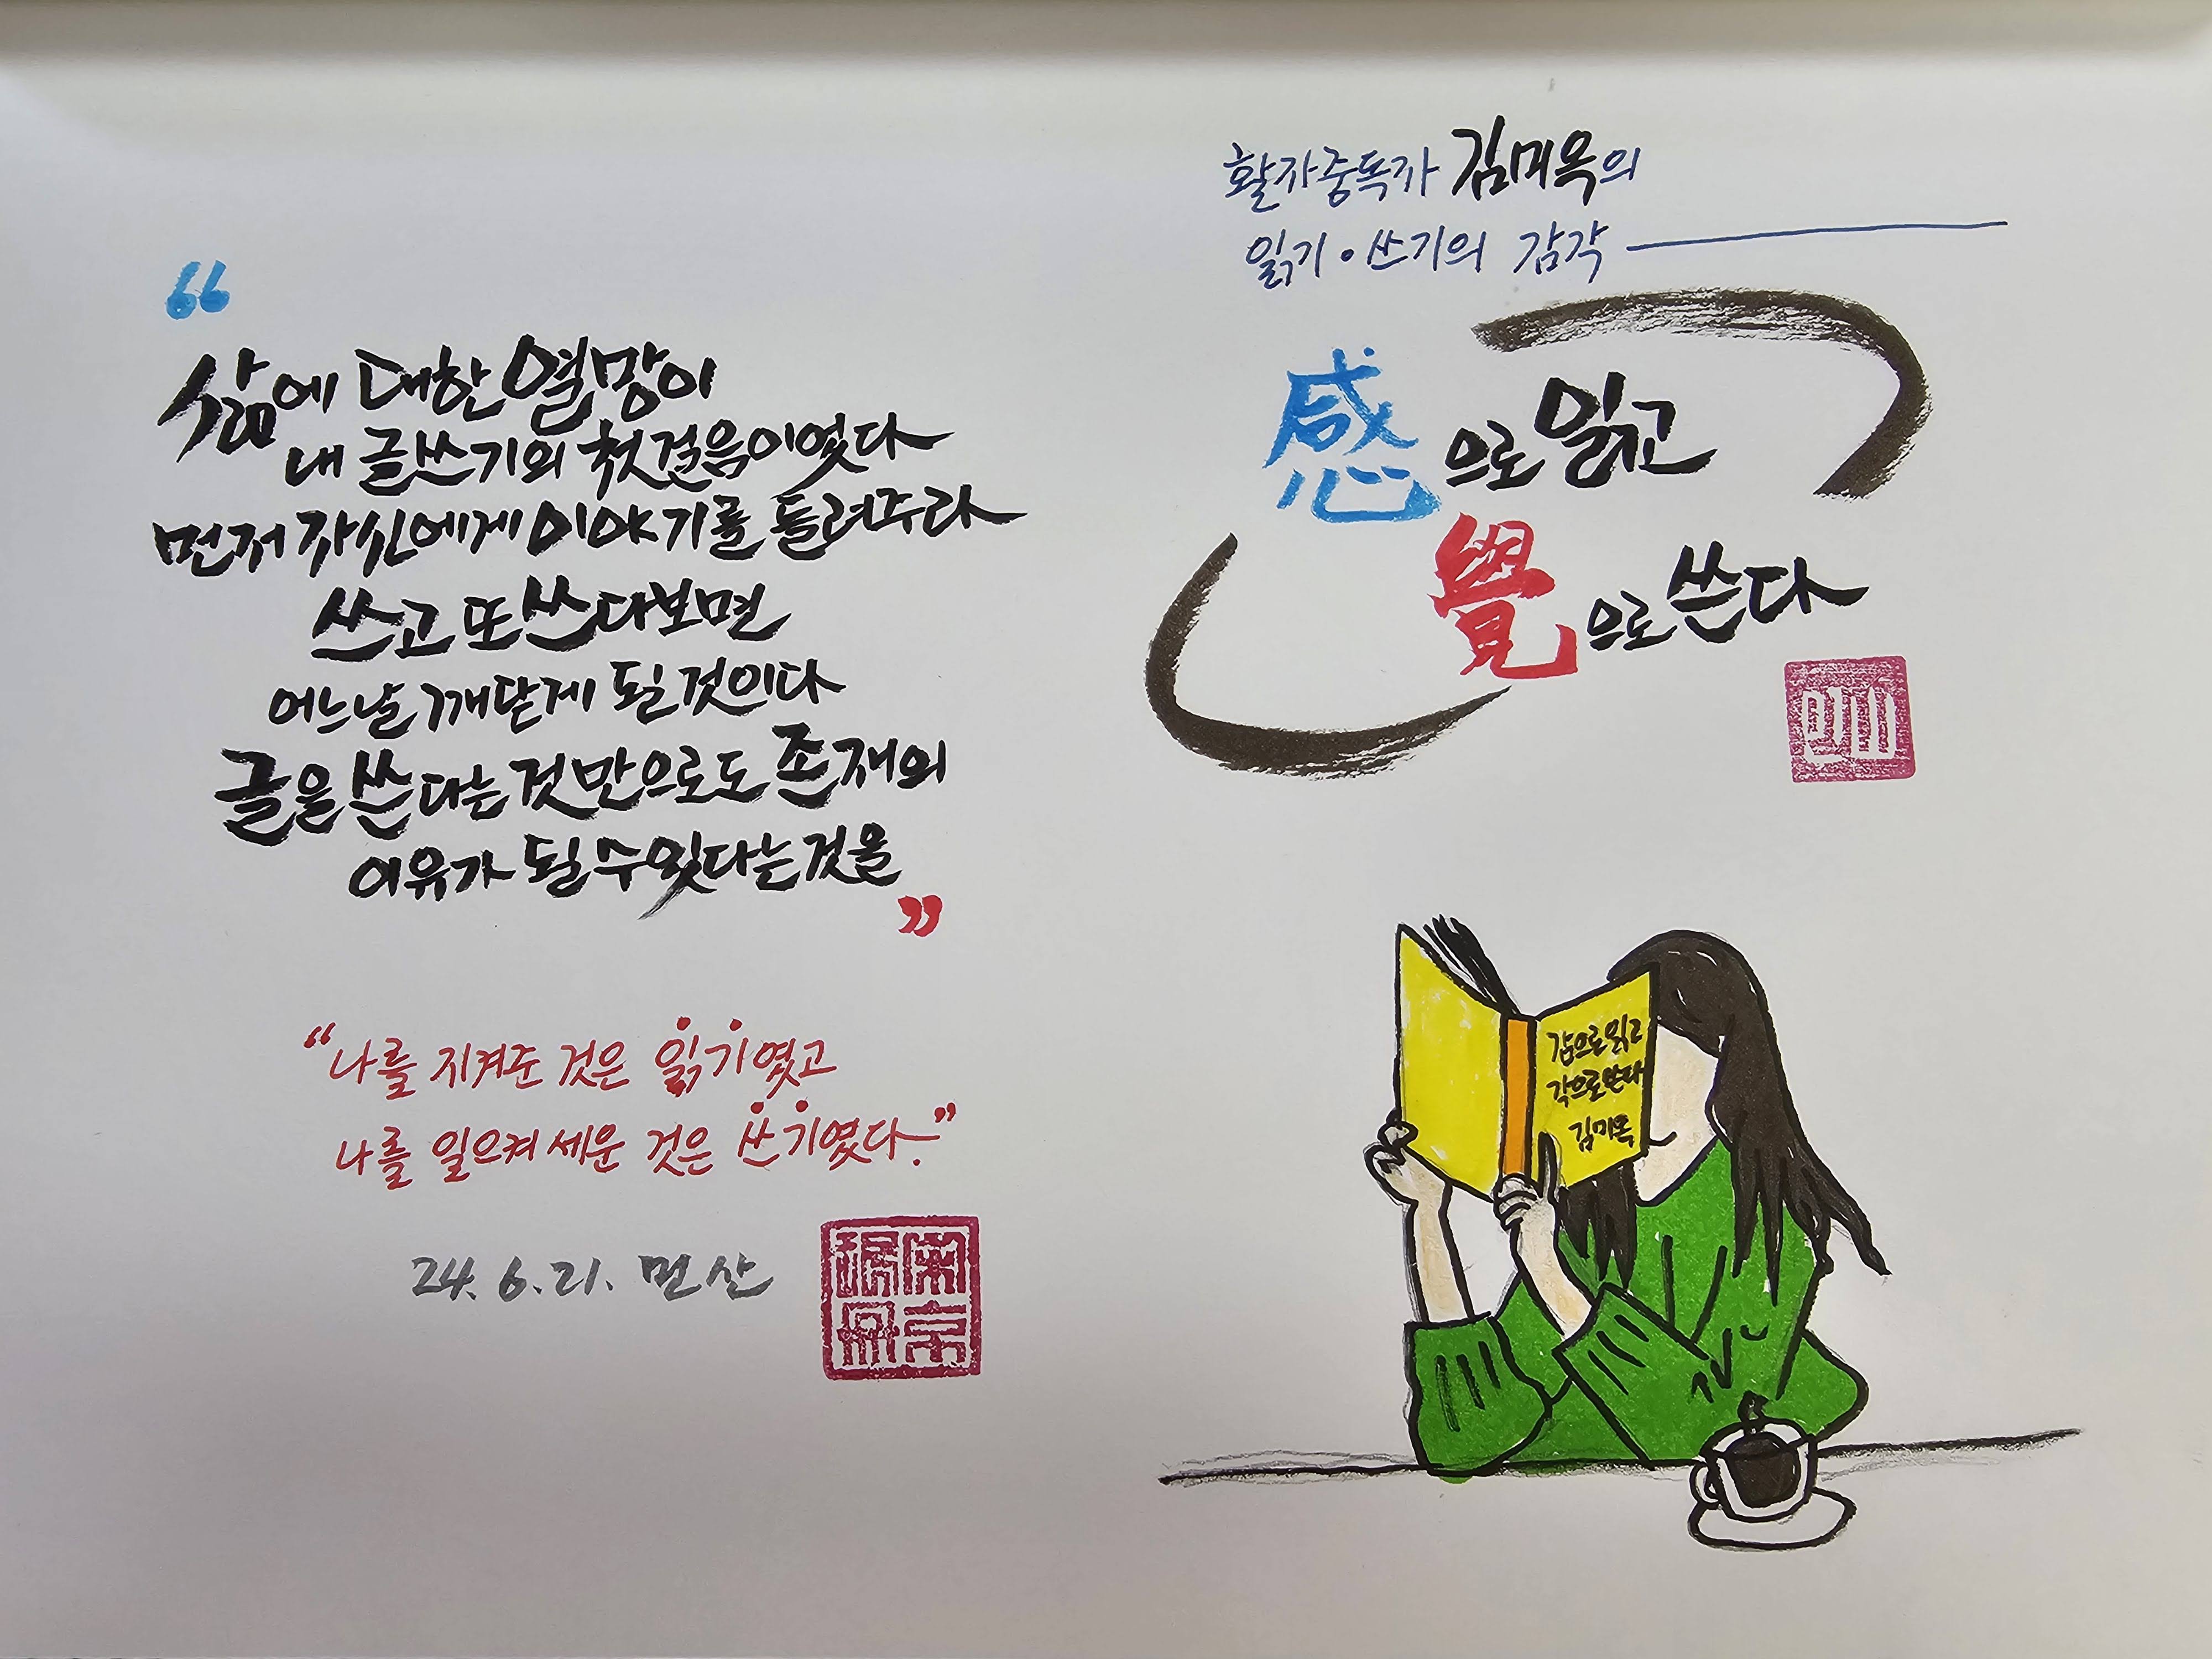 “
삶에 대한 열망이
내 글쓰기의 첫걸음이었다
먼저 자신에게 이야기를 들려주라
쓰고 또 쓰다보면
어느날 깨닫게 될 것이다
글을 쓴다는 것만으로도 존재의
이유가 될 수 있다는 것을
”
“나를 지켜준 것은 읽기였고
나를 일으켜 세운 것은 쓰기였다.”
24. 6. 21. 먼산
활자중독자 김미옥의
읽기·쓰기의 감각
感으로 읽고
覺으로 쓰다
감으로 읽고
각으로 쓴다
김미옥